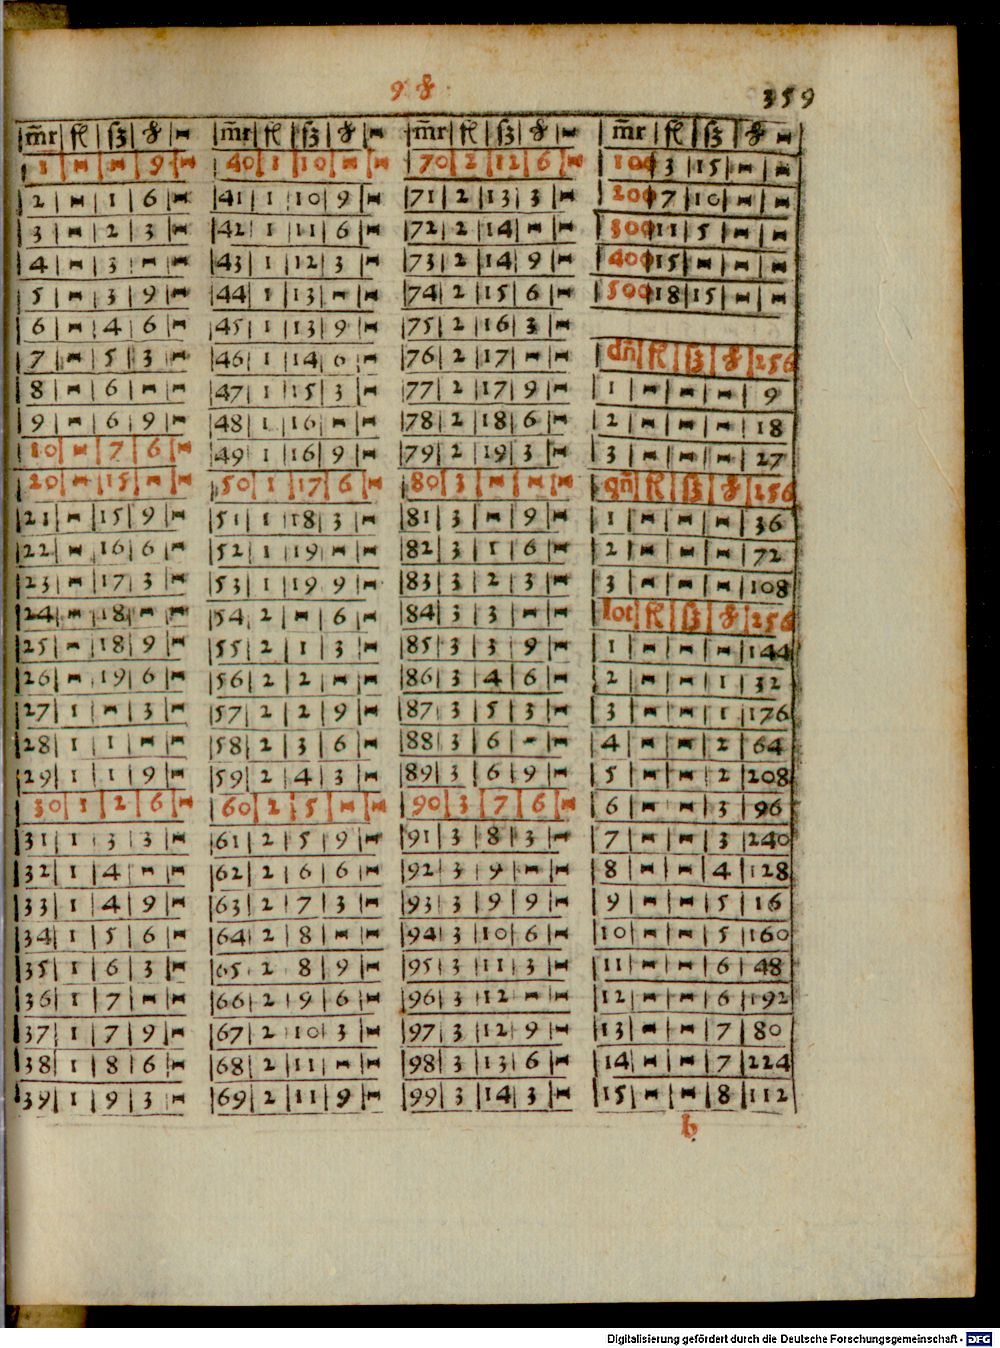 9 ₰
359
m̄r fl ſʒ ₰ -
1 - - 9 -
2 - 1 6 -
3 - 2 3 -
4 - 3 - -
5 - 3 9 -
6 - 4 6 -
7 - 5 3 -
8 - 6 - -
9 - 6 9 -
10 - 7 6 -
20 - 15 - -
21 - 15 9 -
22 - 16 6 -
23 - 17 3 -
24 - 18 - -
25 - 18 9 -
26 - 19 6 -
27 1 - 3 -
28 1 1 - -
29 1 1 9 -
30 1 2 6 -
31 1 3 3 -
32 1 4 - -
33 1 4 9 -
34 1 5 6 -
35 1 6 3 -
36 1 7 - -
37 1 7 9 -
38 1 8 6 -
39 1 9 3 -
m̄r fl ſʒ ₰ -
40 1 10 - -
41 1 10 9 -
42 1 11 6 -
43 1 12 3 -
44 1 13 - -
45 1 13 9 -
46 1 14 6 -
47 1 15 3 -
48 1 16 - -
49 1 16 9 -
50 1 17 6 -
51 1 18 3 -
52 1 19 - -
53 1 19 9 -
54 2 - 6 -
55 2 1 3 -
56 2 2 - -
57 2 2 9 -
58 2 3 6 -
59 2 4 3 -
60 2 5 - -
61 2 5 9 -
62 2 6 6 -
63 2 7 3 -
64 2 8 - -
65 2 8 9 -
66 2 9 6 -
67 2 10 3 -
68 2 11 - -
69 2 11 9 -
m̄r fl ſʒ ₰ -
70 2 12 6 -
71 2 13 3 -
72 2 14 - -
73 2 14 9 -
74 2 15 6 -
75 2 16 3 -
76 2 17 - -
77 2 17 9 -
78 2 18 6 -
79 2 19 3 -
80 3 - - -
81 3 - 9 -
82 3 1 6 -
83 3 2 3 -
84 3 3 - -
85 3 3 9 -
86 3 4 6 -
87 3 5 3 -
88 3 6 - -
89 3 6 9 -
90 3 7 6 -
91 3 8 3 -
92 3 9 - -
93 3 9 9 -
94 3 10 6 -
95 3 11 3 -
96 3 12 - -
97 3 12 9 -
98 3 13 6 -
99 3 14 3 -
m̄r fl ſʒ ₰ -
100 3 15 - -
200 7 10 - -
300 11 5 - -
400 15 - - -
500 18 15 - -
dn̄ fl ſʒ ₰ 256
1 - - - 9
2 - - - 18
3 - - - 27
qn̄ fl ſʒ ₰ 256
1 - - - 36
2 - - - 72
3 - - - 108
lot fl ſʒ ₰ 256
1 - - - 144
2 - - 1 32
3 - - 1 176
4 - - 2 64
5 - - 2 208
6 - - 3 96
7 - - 3 240
8 - - 4 128
9 - - 5 16
10 - - 5 160
11 - - 6 48
12 - - 6 192
13 - - 7 80
14 - - 7 224
15 - - 8 112
b
Digitalisierung gefördert durch die Deutsche Forschungsgemeinschaft - DFG